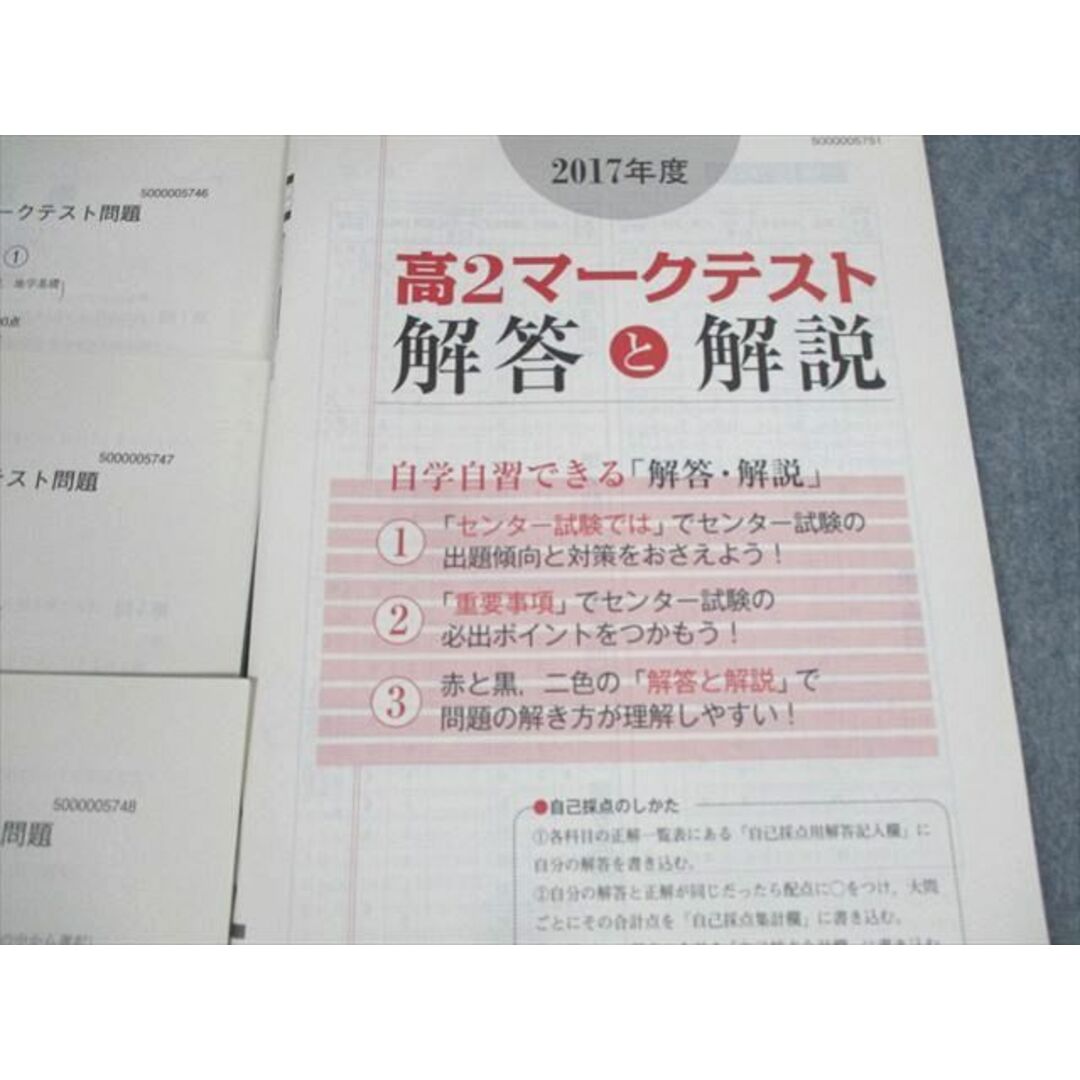 5000005746
ークテスト問題
①
地学基礎
0点
5000005747
テスト問題
5000005748
問題
5000005751
2017年度
高2マークテスト
解答と解説
自学自習できる「解答・解説」
① 「センター試験では」でセンター試験の
出題傾向と対策をおさえよう！
② 「重要事項」でセンター試験の
必出ポイントをつかもう！
③ 赤と黒，二色の「解答と解説」で
問題の解き方が理解しやすい！
●自己採点のしかた
①各科目の正解一覧表にある「自己採点用解答記入欄」に
自分の解答を書き込む。
②自分の解答と正解が同じだったら配点に○をつけ，大問
ごとにその合計点を「自己採点集計欄」に書き込む。